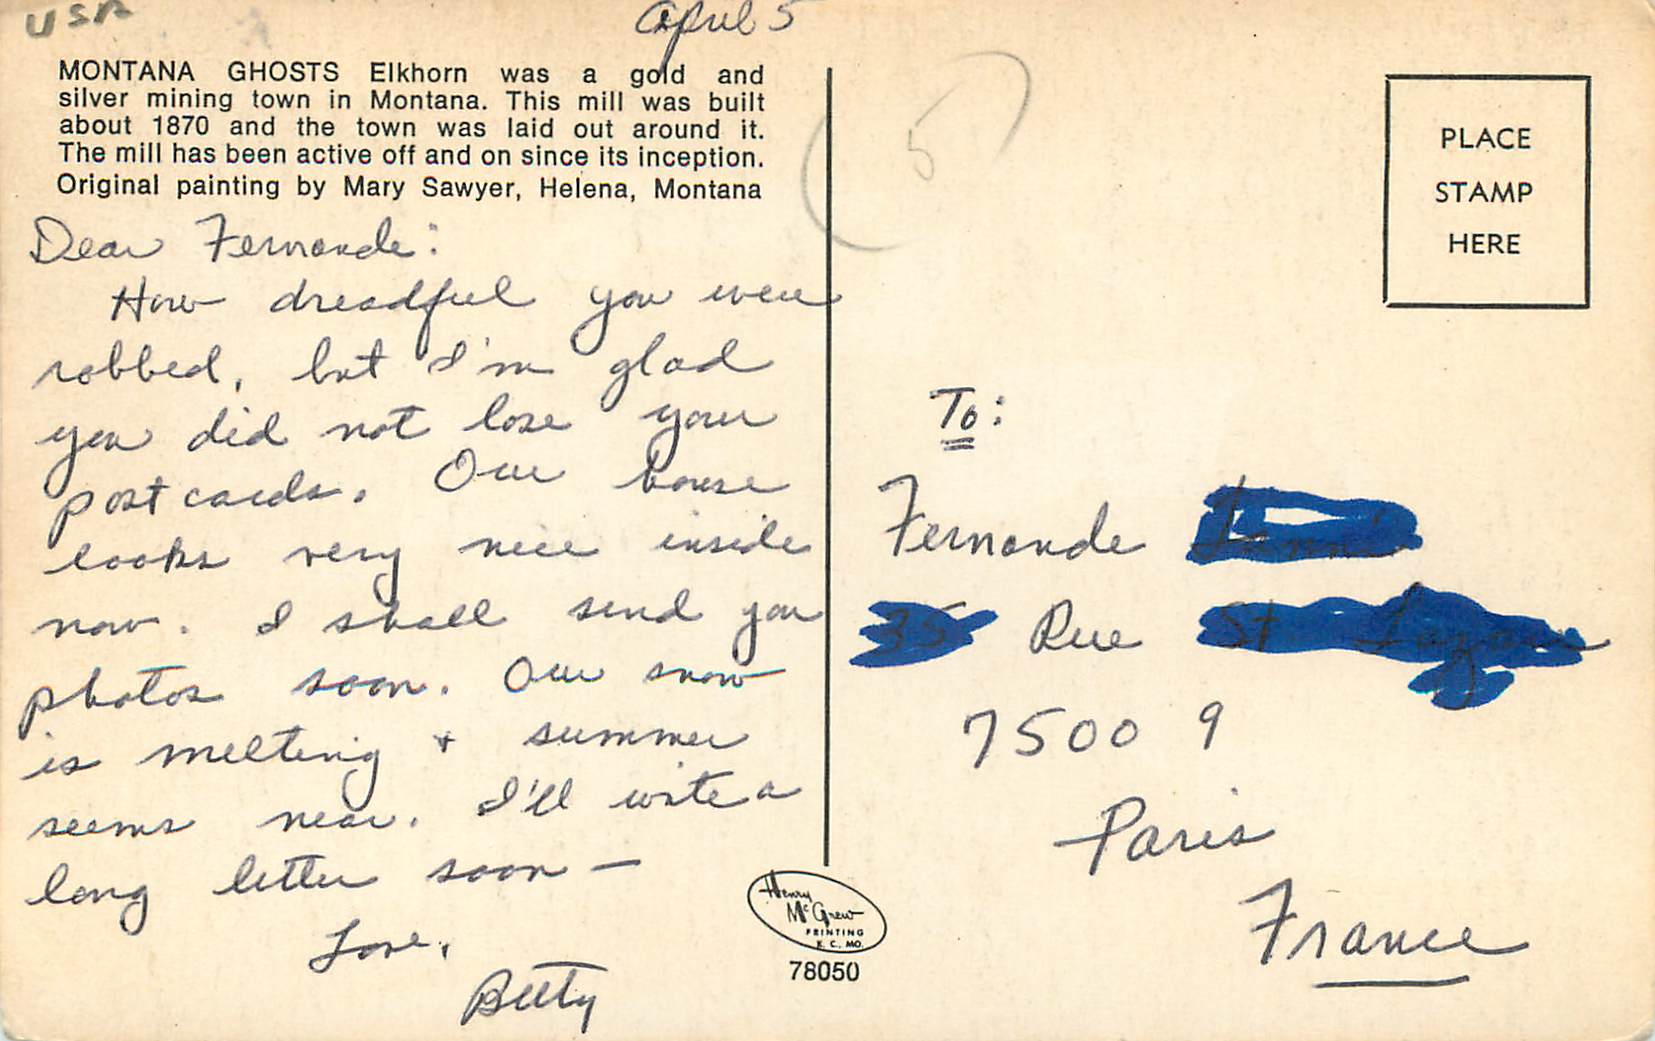 USA
April 5
MONTANA GHOSTS Elkhorn was a gold and
silver mining town in Montana. This mill was built
about 1870 and the town was laid out around it.
The mill has been active off and on since its inception.
Original painting by Mary Sawyer, Helena, Montana
Dear Fernande:
How dreadful you were
robbed, but I'm glad
you did not lose your
postcards. Our house
looks very nice inside
now. I shall send you
photos soon. Our snow
is melting + summer
seems near. I'll write a
long letter soon —
Love,
Betty
5
PLACE
STAMP
HERE
To:
Fernande
Rue
75009
Paris
France
Henry
McGrew
PRINTING
K. C. MO.
78050